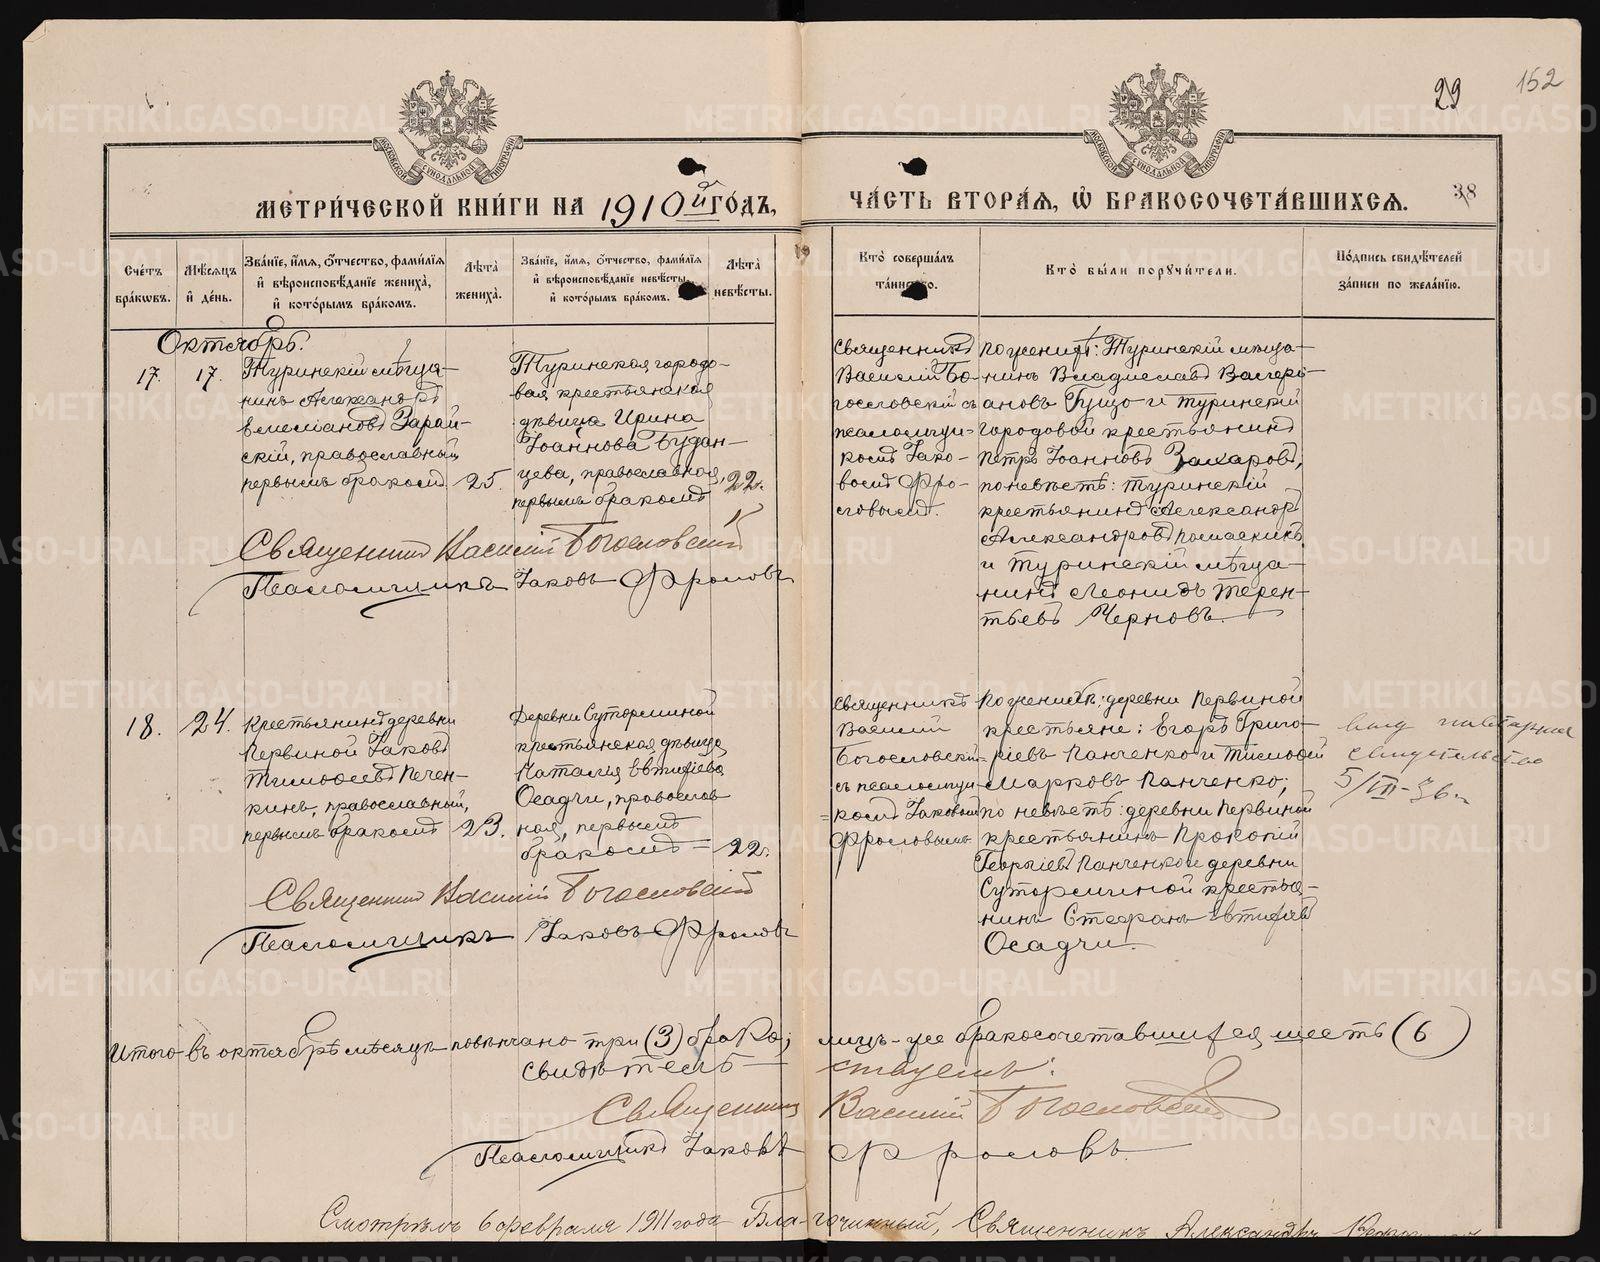 29
152
38
МОСКОВСКОЙ СѴНОДАЛЬНОЙ ТИПОГРАФІИ
МОСКОВСКОЙ СѴНОДАЛЬНОЙ ТИПОГРАФІИ
МЕТРИ́ЧЕСКОЙ КНИ́ГИ НА 1910й ГО́ДЪ,
ЧА́СТЬ ВТОРА́Я, Ѽ БРАКОСОЧЕТА́ВШИХСЯ.
Сче́тъ бра́кѡвъ.
Мѣ́сяцъ и҆ де́нь.
Зва́нїе, и҆́мя, ѻ҆́тчество, фами́лїя и҆ вѣроисповѣ́данїе жениха̀, и҆ кото́рымъ бра́комъ.
Лѣ́та жениха̀.
Зва́нїе, и҆́мя, ѻ҆́тчество, фами́лїя и҆ вѣроисповѣ́данїе невѣ́сты, и҆ кото́рымъ бра́комъ.
Лѣ́та невѣ́сты.
Кто̀ соверша́лъ та́инство.
Кто̀ бы́ли порꙋчи́тели.
По́дпись свидѣ́телей за́писи по жела́нїю.
Октябрь.
17.
17.
Туринскій мѣща-
нинъ Александръ
Емеліановъ Зарай-
скій, православный
первымъ бракомъ
25.
Туринская городо-
вая крестьянская
дѣвица Ирина
Іоаннова Будан-
цева, православная,
первымъ бракомъ
22.
Священникъ
Василій Бо-
гословскій съ
псаломщи-
комъ Іако-
вомъ Фро-
ловымъ.
По женихѣ: Туринскій мѣща-
нинъ Владиславъ Валері-
ановъ Гущо и туринскій
городовой крестьянинъ
Петръ Іоанновъ Захаровъ,
по невѣстѣ: туринскій
крестьянинъ Александръ
Александровъ
и Туринскій мѣща-
нинъ Леонидъ Терен-
тьевъ Черновъ.
Священникъ Василій Богословскій
Псаломщикъ Іаковъ Фроловъ
18.
24.
Крестьянинъ деревни
Первиной Іаковъ
Тимофеевъ Печен-
кинъ, православный,
первымъ бракомъ
23.
Деревни Суторминой
крестьянская дѣвица
Наталія Евтифіева
Осадчи, православ
ная, первымъ
бракомъ
22.
Священникъ
Василій
Богословскій
съ псаломщи
комъ Іаковомъ
Фроловымъ
По женихѣ: деревни Первиной
крестьяне: Егоръ Григо-
ріевъ Панченко и Тимофей
Марковъ Панченко;
по невѣстѣ: деревни Первиной
крестьянинъ Прокопій
Георгіевъ Панченко и деревни
Суторминой крестья-
нинъ Стефанъ Евтифіевъ
Осадчи.
свидетельство
5/VII-36г
Священникъ Василій Богословскій
Псаломщикъ Іаковъ Фроловъ
Итого въ октябрѣ мѣсяцѣ повѣнчано три (3) брака; лицъ-же бракосочетавшихся шесть (6)
Свидѣтельствуемъ:
Священникъ Василій Богословскій
Псаломщикъ Іаковъ Фроловъ.
Смотрѣлъ 6 февраля 1911 года Благочинный, Священникъ Александръ
METRIKI.GASO-URAL.RU